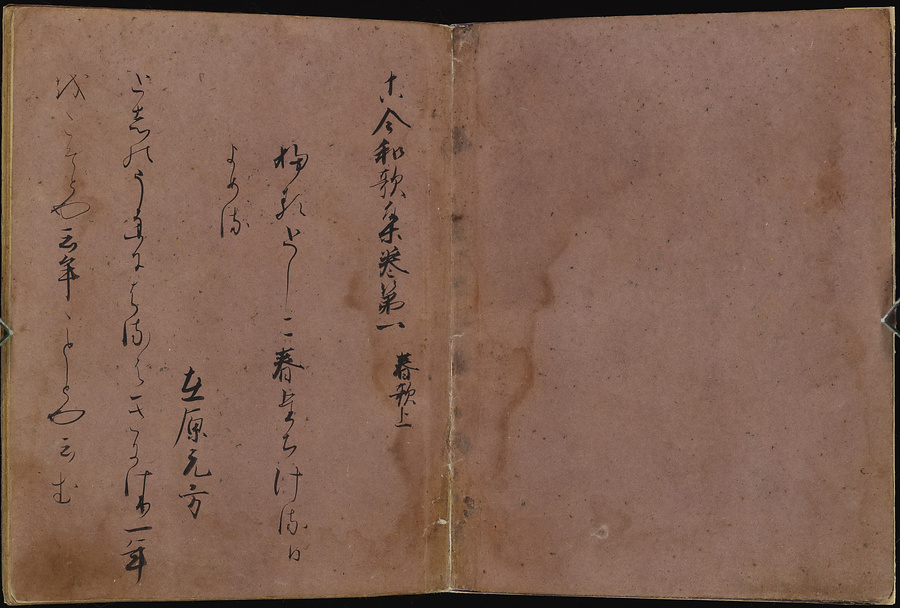 古今和歌集巻第一 春歌上
ふるとしに春たちける日
よめる
在原元方
としのうちにはるはきにけり一年
をこそとや云年ことしとや云む